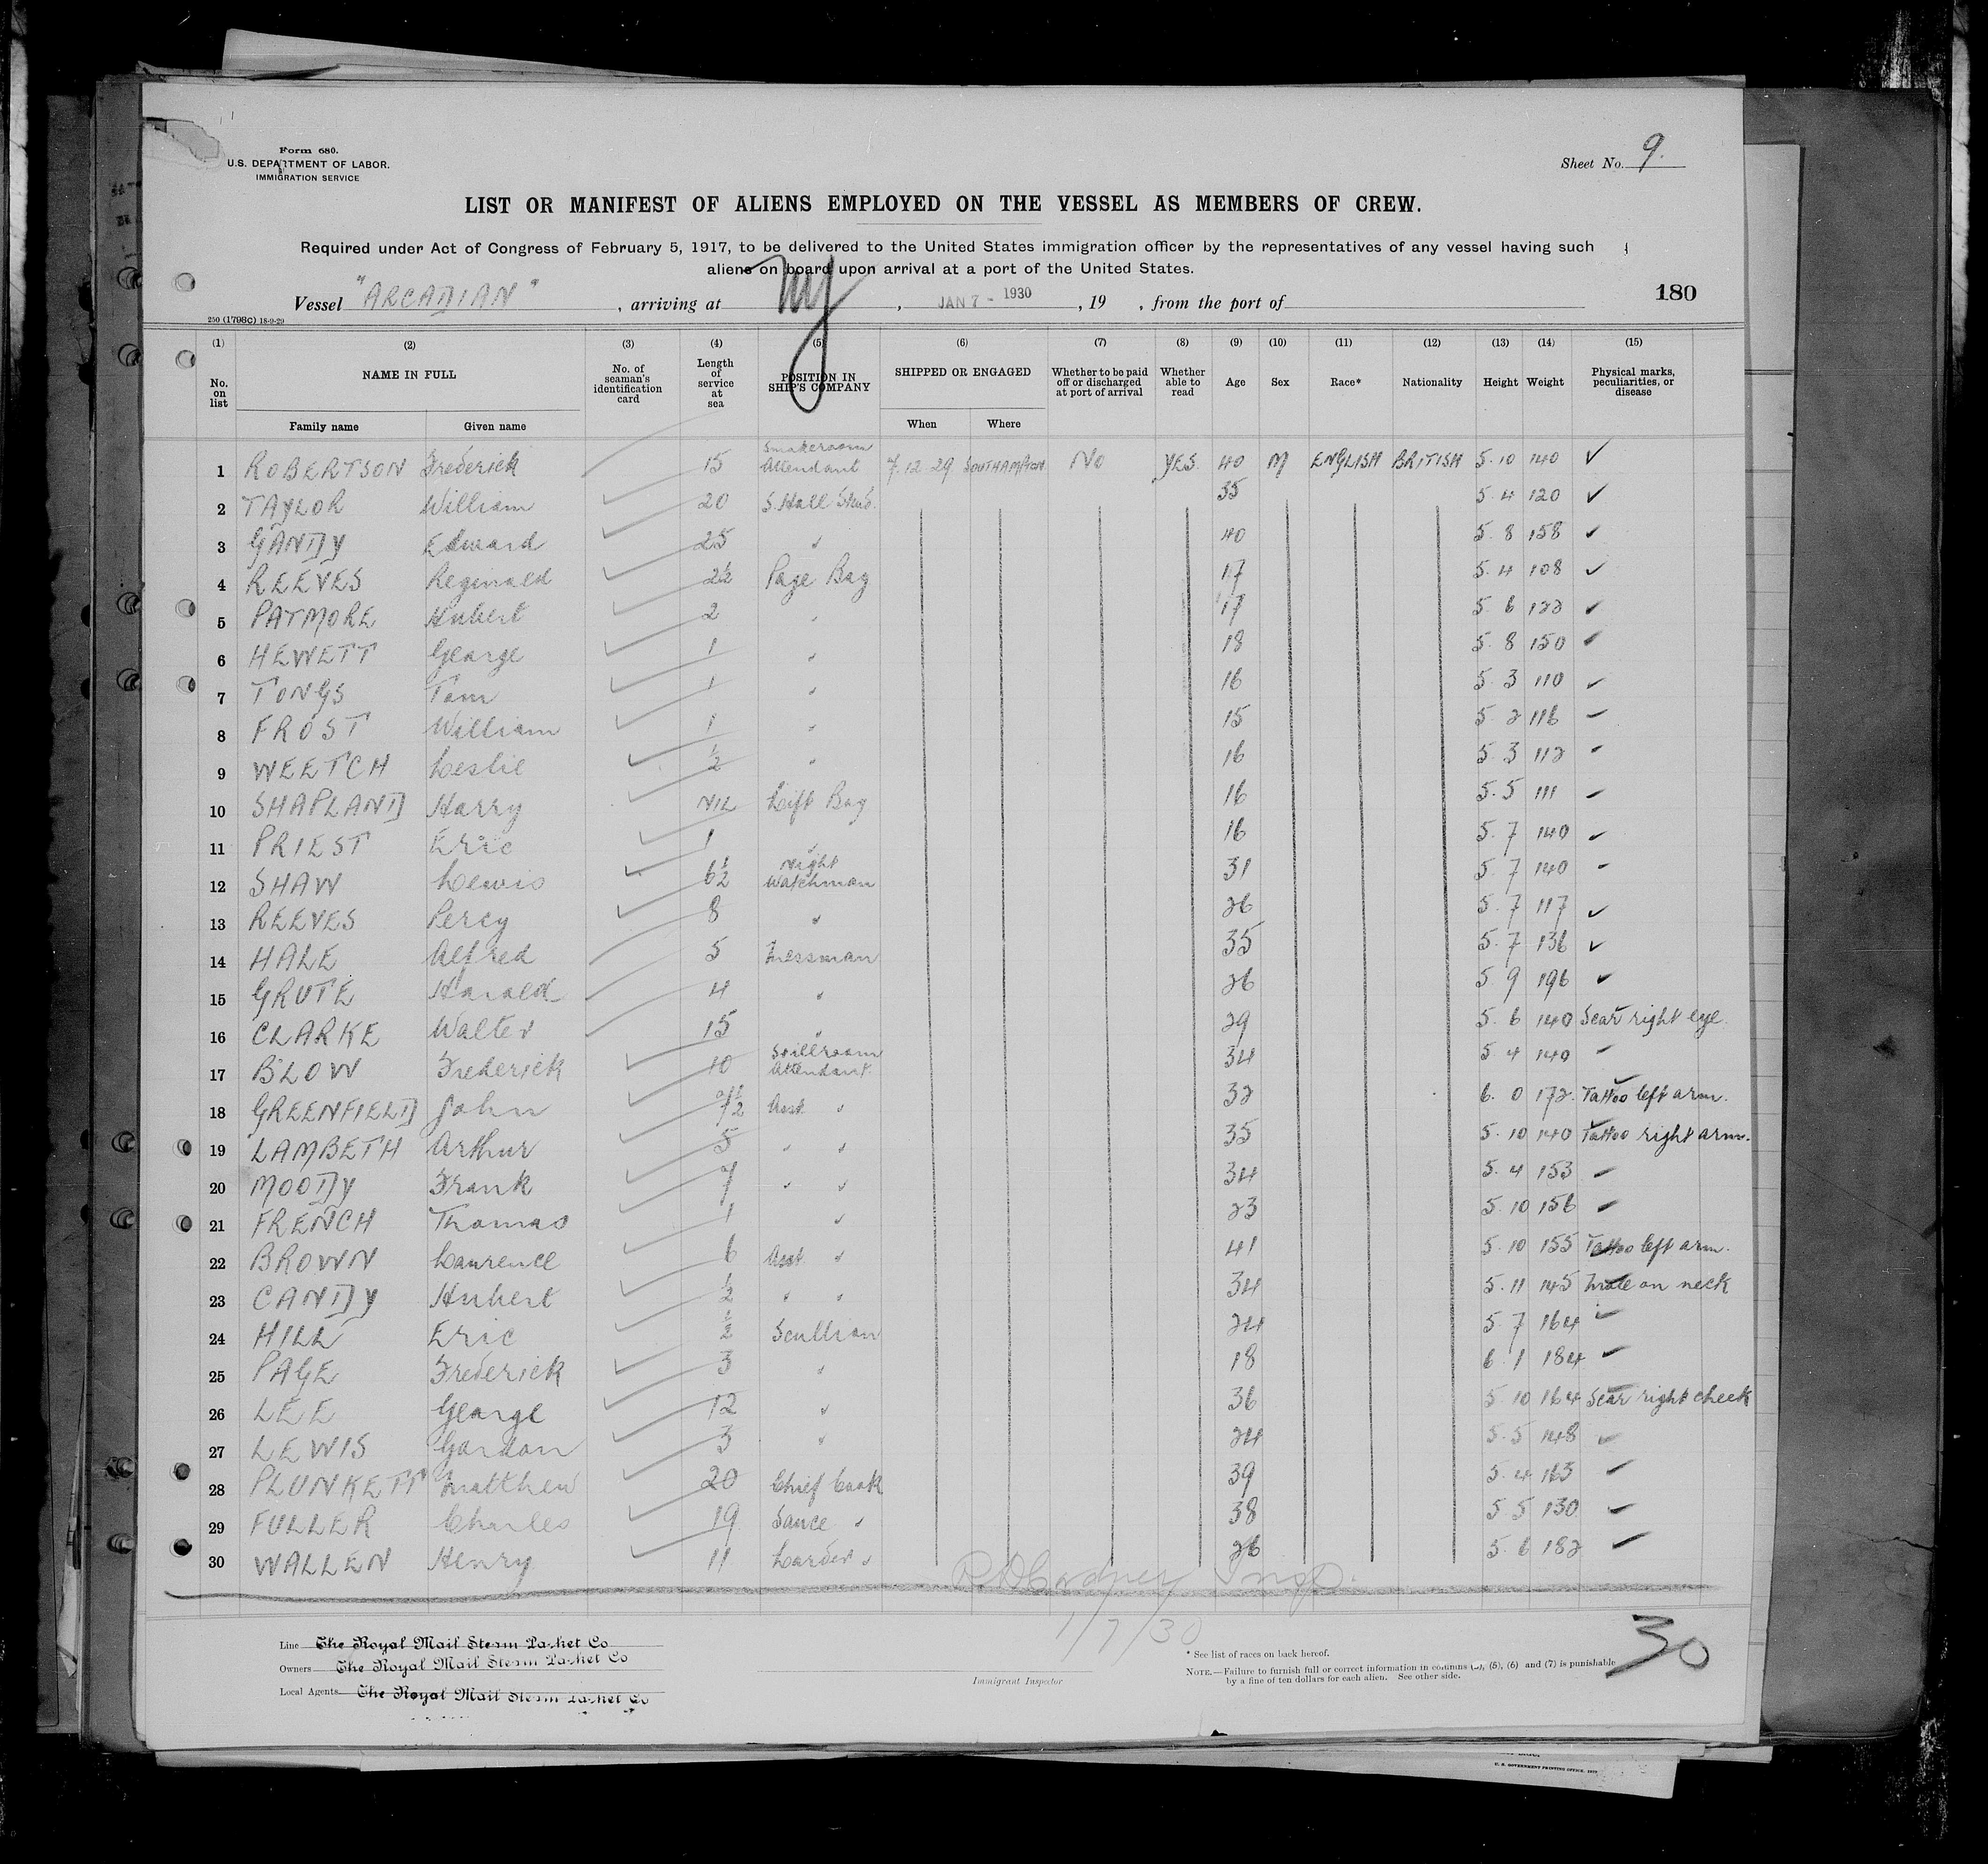 Form 680.
U.S. DEPARTMENT OF LABOR.
IMMIGRATION SERVICE
Sheet No. 9.
LIST OR MANIFEST OF ALIENS EMPLOYED ON THE VESSEL AS MEMBERS OF CREW.
Required under Act of Congress of February 5, 1917, to be delivered to the United States immigration officer by the representatives of any vessel having such
aliens on board upon arrival at a port of the United States.
Vessel "ARCADIAN", arriving at NY, JAN 7 - 1930, 19 , from the port of
180
250 (1798C) 18-9-29
(1) (2) (3) (4) (5) (6) (7) (8) (9) (10) (11) (12) (13) (14) (15)
No. on list NAME IN FULL No. of seaman's identification card Length of service at sea POSITION IN SHIP'S COMPANY SHIPPED OR ENGAGED Whether to be paid off or discharged at port of arrival Whether able to read Age Sex Race* Nationality Height Weight Physical marks, peculiarities, or disease
Family name Given name When Where
1 ROBERTSON Frederick 15 Smokeroom Attendant 7.12 29 SOUTHAMPTON No YES. 40 M ENGLISH BRITISH 5.10 140 ✓
2 TAYLOR William 20 S. Hall Stwd. 35 5.4 120 ✓
3 GANDY Edward 25 " 40 5.8 158 ✓
4 REEVES Reginald 2½ Page Boy 17 5.4 108 ✓
5 PATMORE Hubert 2 " 17 5.6 122 ✓
6 HEWETT George 1 " 18 5.8 150 ✓
7 TONGS Tom 1 " 16 5.3 110 ✓
8 FROST William 1 " 15 5.2 116 ✓
9 WEETCH Leslie ½ " 16 5.3 112 ✓
10 SHAPLAND Harry NIL Lift Boy 16 5.5 111 ✓
11 PRIEST Eric 1 " 16 5.7 140 ✓
12 SHAW Lewis 6½ Night Watchman 31 5.7 140 ✓
13 REEVES Percy 8 " 26 5.7 117 ✓
14 HALE Alfred 5 Messman 35 5.7 136 ✓
15 GRUTE Harold 4 " 26 5 9 196 ✓
16 CLARKE Walter 15 " 29 5.6 140 Scar right eye.
17 BLOW Frederick 10 Stillroom Attendant. 34 5.4 140 ✓
18 GREENFIELD John 7½ Asst " 32 6.0 172. Tattoo left arm.
19 LAMBETH Arthur 5 " " 35 5.10 140 Tattoo right arm.
20 MOODY Frank 7 " " 34 5.4 153 ✓
21 FRENCH Thomas 1 " 23 5.10 156 ✓
22 BROWN Laurence 6 Asst " 41 5.10 155 Tattoo left arm.
23 CANDY Hubert ½ " " 34 5.11 145 Mole on neck
24 HILL Eric ½ Scullion 24 5.7 164 ✓
25 PAGE Frederick 3 " 18 6.1 184 ✓
26 LEE George 12 " 36 5.10 164 Scar right cheek
27 LEWIS Gordon 3 " 24 5.5 148 ✓
28 PLUNKETT Matthew 20 Chief Cook 39 5.4 163 ✓
29 FULLER Charles 19 Sauce " 38 5 5 130 ✓
30 WALLEN Henry 11 Larder " 26 5.6 182 ✓
Insp.
1/7/30
30
Line The Royal Mail Steam Packet Co
Owners The Royal Mail Steam Packet Co
Local Agents The Royal Mail Steam Packet Co
Immigrant Inspector
* See list of races on back hereof.
NOTE.—Failure to furnish full or correct information in columns (5), (6) and (7) is punishable
by a fine of ten dollars for each alien. See other side.
U. S. GOVERNMENT PRINTING OFFICE.